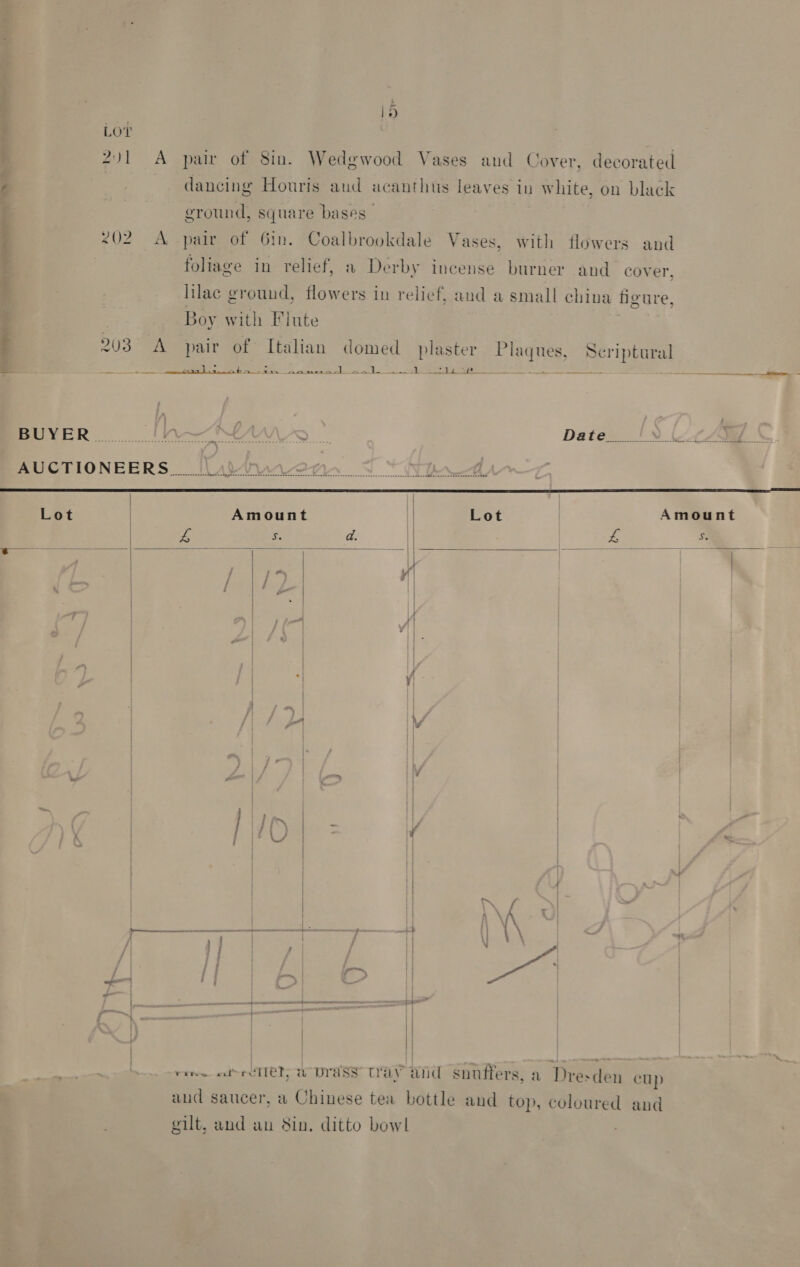 15
LOT
201 A pair of 8in. Wedgwood Vases and Cover, decorated
dancing Houris and acanthus leaves in white, on black
ground, square bases
202 A pair of 6in. Coalbrookdale Vases, with flowers and
foliage in relief, a Derby incense burner and cover,
lilac ground, flowers in relief, and a small china figure,
Boy with Flute
203 A pair of Italian domed plaster Plaques, Scriptural
BUYER Date
AUCTIONEERS
Lot Amount Lot Amount
£ s. d. £ s.
1 12
57 2 15
62 1 -
63 1 12
2 17 6
1 10 -
£ 11 6 6
relief, a brass tray and snuffers, a Dresden cup
and saucer, a Chinese tea bottle and top, coloured and
gilt, and an 8in. ditto bowl